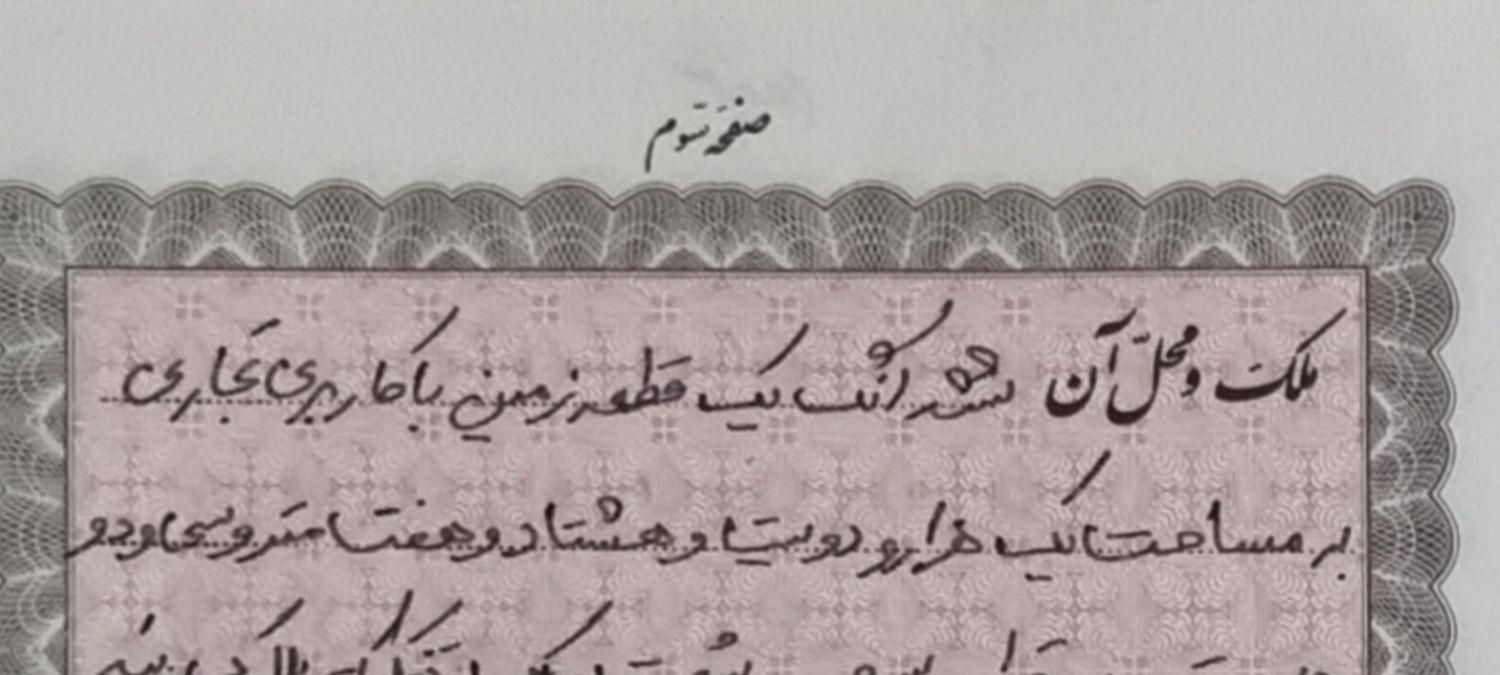 صفحه سوم
ملک و محل آن ششدانگ یک قطعه زمین با کاربری تجاری
به مساحت یک هزار و دویست و هشتاد و هفت متر و پنجاه و دو